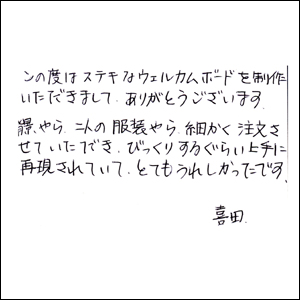 この度はステキなウェルカムボードを制作
いただきまして、ありがとうございます
景やら、二人の服装やら、細かく注文さ
せていただき、びっくりするぐらい上手に
再現されていて、とてもうれしかったです。
喜田